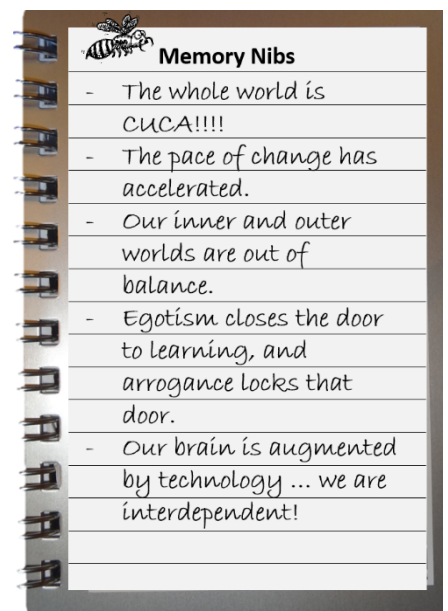 Memory Nibs
- The whole world is
CUCA!!!!
- The pace of change has
accelerated.
- Our inner and outer
worlds are out of
balance.
- Egotism closes the door
to learning, and
arrogance locks that
door.
- Our brain is augmented
by technology ... we are
interdependent!